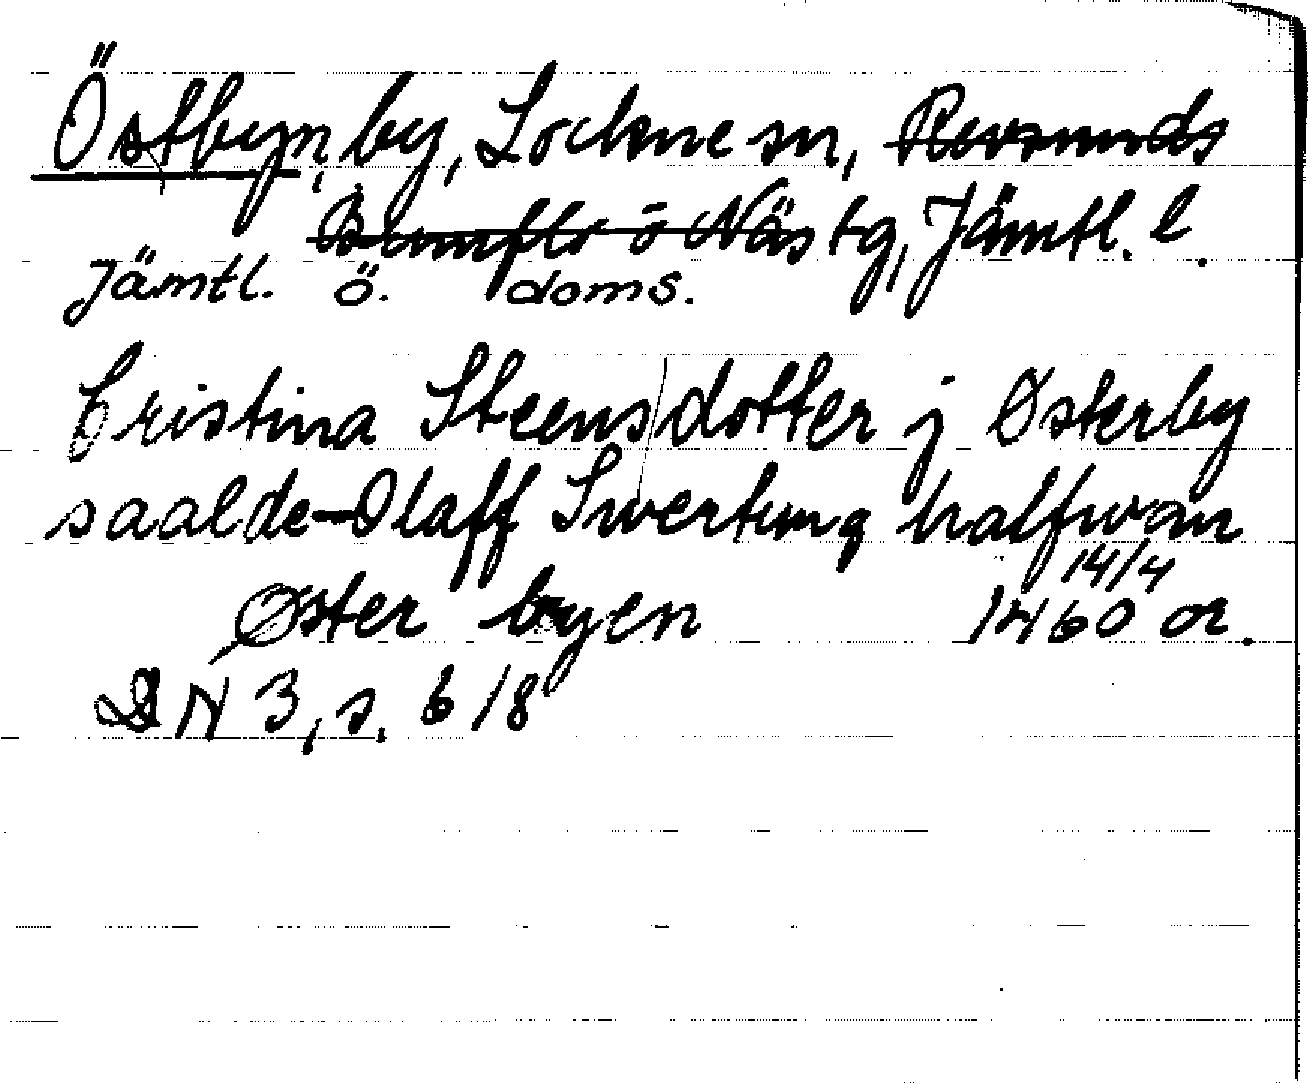 Östbyn, by, Lockne sn, Revsunds
Brunflo ö Näs tg, Jämtl. l.
Jämtl. ö. doms.
Cristina Steensdotter j Østerby
saalde Olaff Swertung halfwan
Øster byen 14/4 1460 or.
DN 3, s. 618